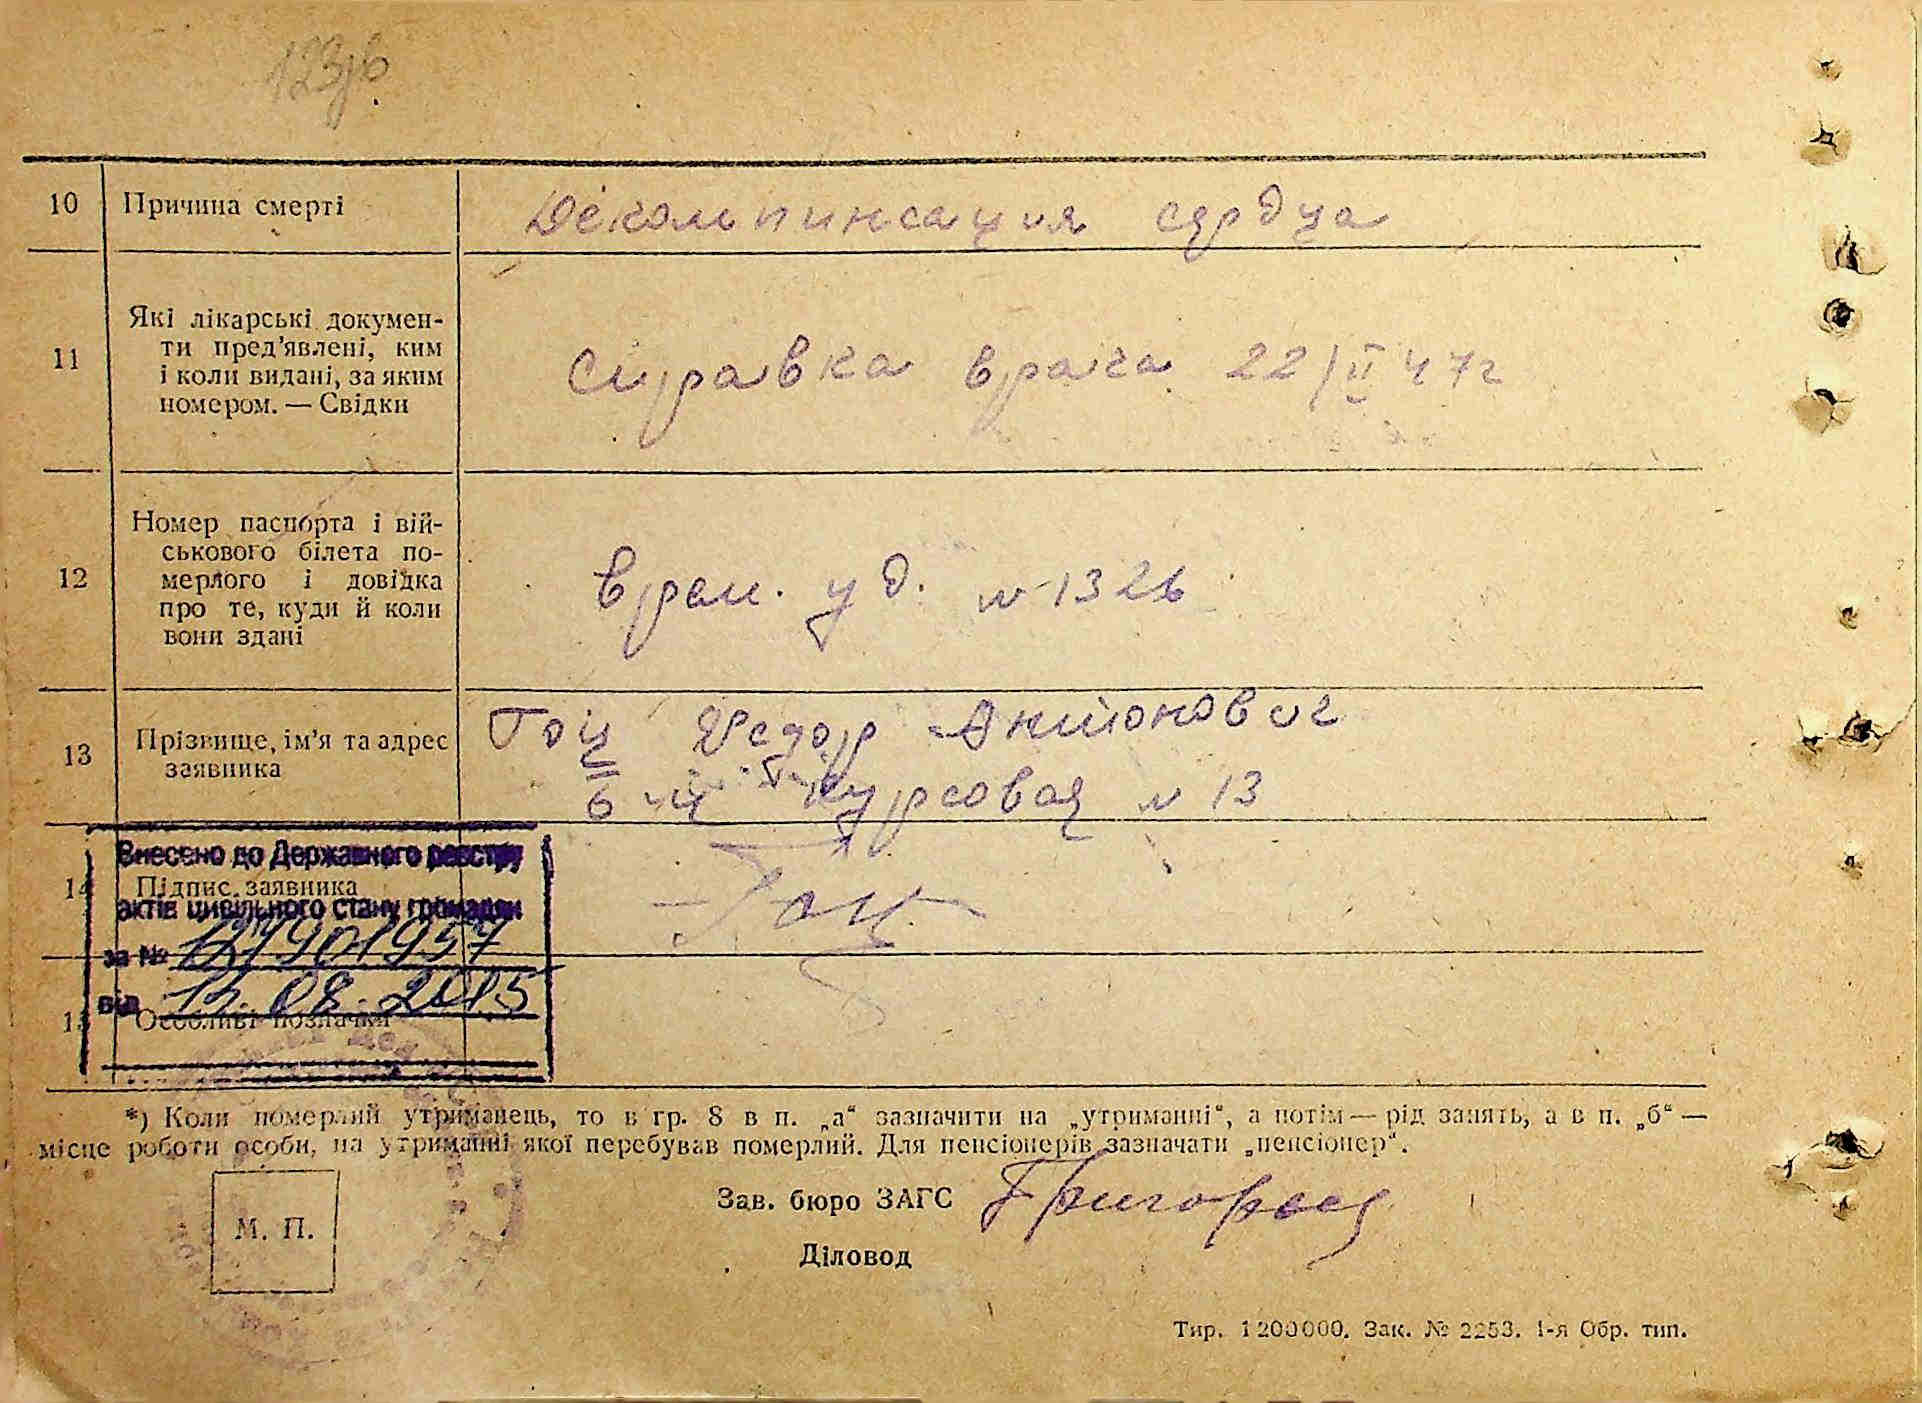 123зв
10 Причина смерті Декомпинсация сердца
11 Які лікарські докумен-
ти пред'явлені, ким
і коли видані, за яким
номером. — Свідки
Справка врача 22/II 47г
12 Номер паспорта і вій-
ськового білета по-
мерлого і довідка
про те, куди й коли
вони здані
врем. уд. № 1326
13 Прізвище, ім'я та адрес
заявника
Гоц Федор Антонович
6 Курсовая № 13
14 Підпис заявника Гоц
15 Особливі позначки
Внесено до Державного реєстру
актів цивільного стану громадян
за №
від 12.08.2015
*) Коли померлий утриманець, то в гр. 8 в п. „а“ зазначити на „утриманні“, а потім — рід занять, а в п. „б“ —
місце роботи особи, на утриманні якої перебував померлий. Для пенсіонерів зазначати „пенсіонер“.
М. П.
Зав. бюро ЗАГС
Діловод
Тир. 1200000. Зак. № 2253. 1-я Обр. тип.